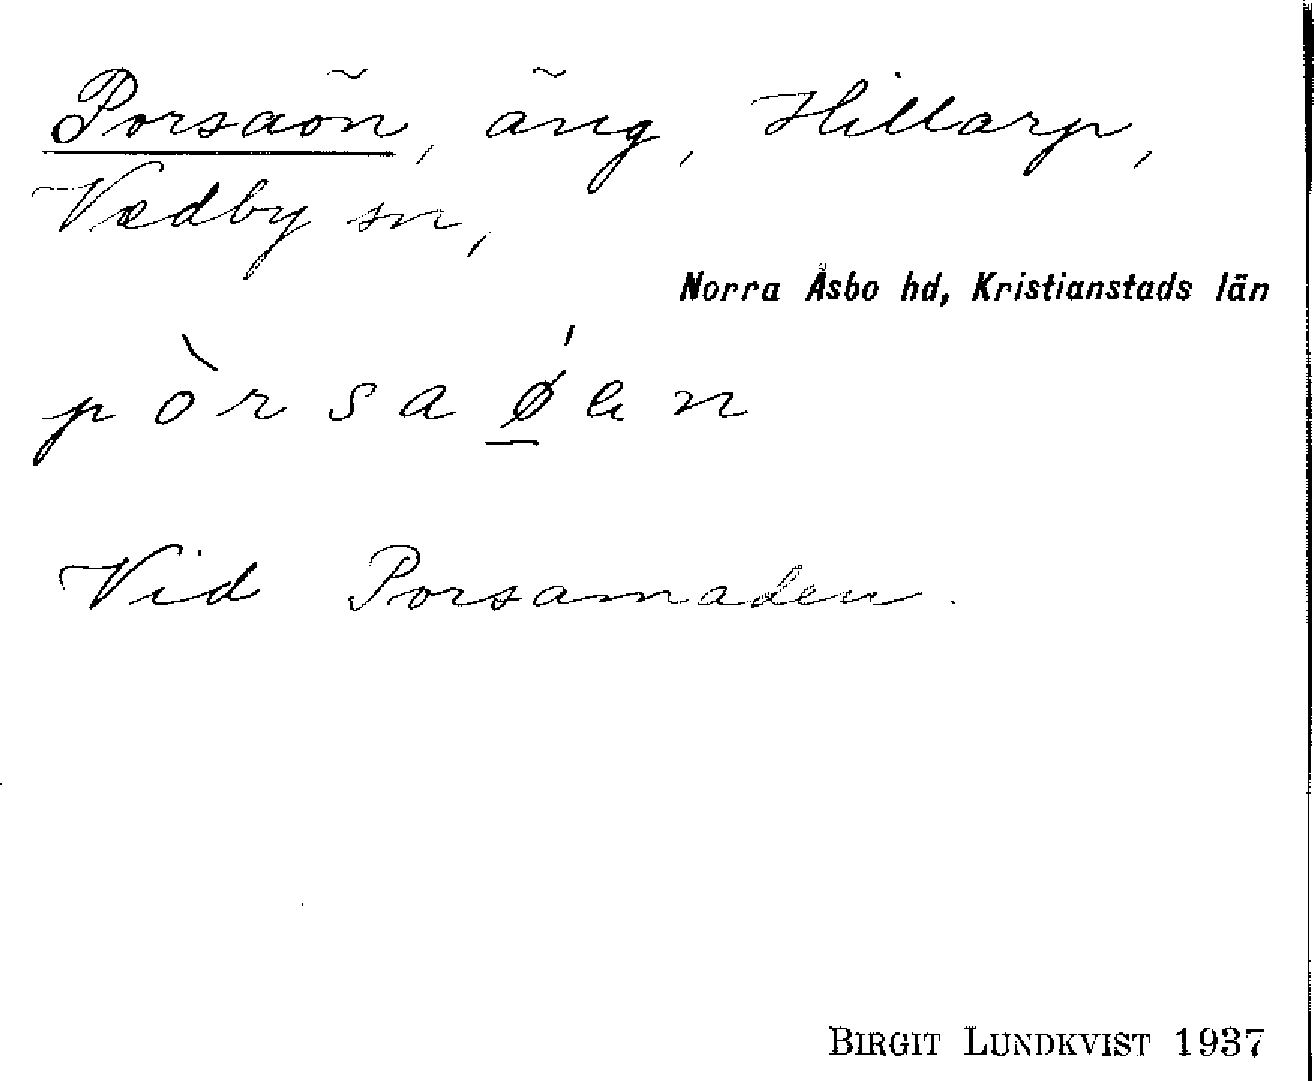 Porsaön, äng, Hillarp,
Vedby sn,
Norra Åsbo hd, Kristianstads län
pòrsaǿ̲en
Vid Porsamaden.
BIRGIT LUNDKVIST 1937